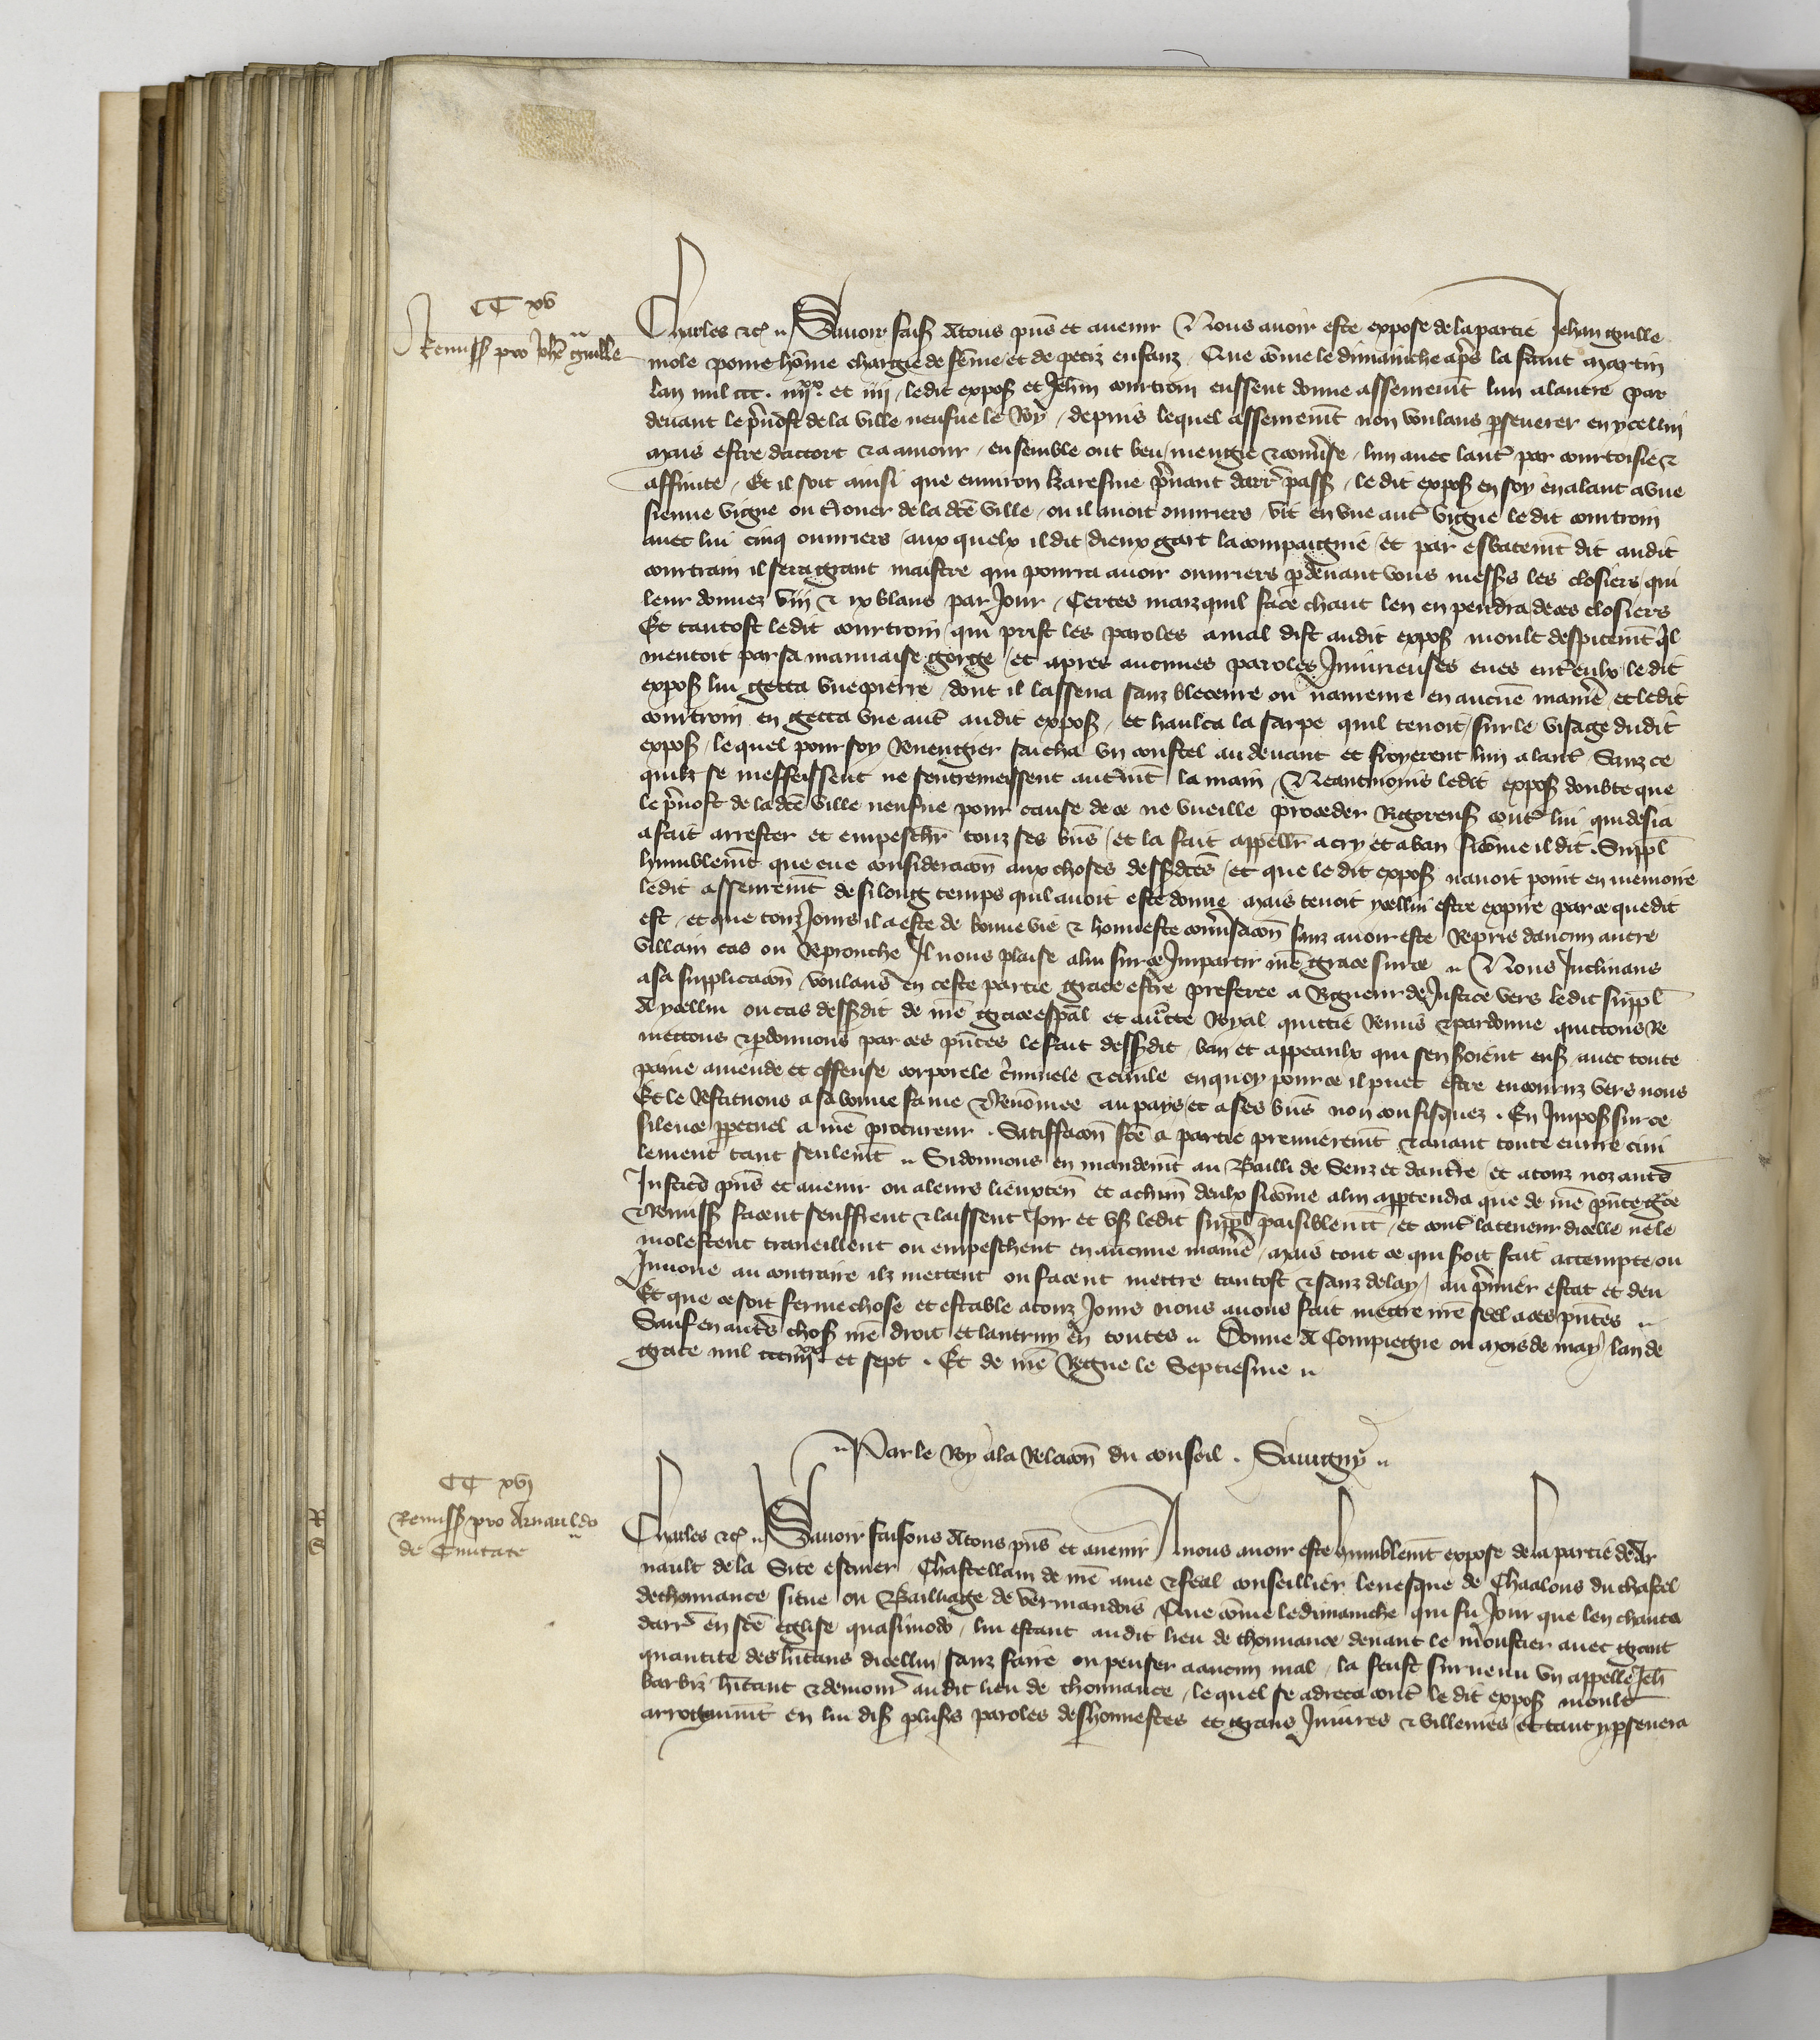 CC xv
Remiss pro Joh̄e guille
Charles etc. Savoir faiz A tous p̄ns et avenir Nous avoir este expose de la partie Jehan guille
mole povre hōme chargie de fēme et de petiz enfanz Que cōme le dimainche ap̄s la saint martin
lan mil ccc. iiijxx. et iiij, ledit expos et Jehan courtrain eussent donne asseurem̄t lun a lautre par
devant le p̄vost de la ville neufve le Roy, depuis lequel asseurem̄t non voulans p̄severer en ycellui
mais estre dacort et a amour, ensemble ont beu, mengie et conv̄se, lun avec laut̄ par courtoisie et
affinite, Et il soit ainsi que environ karesme p̄nant darr̄ passe, le dit expos en soy en alant a une
sienne vigne ou t̄rouer de la dc̄e ville, ou il avoit ouvriers, vit en une aut̄ vigne le dit courtrain
avec lui cinq ouvriers, aux quelx il dit dieux gart la compaignie, Et par esbatem̄t dit audit
courtrain il sera grant maistre qui pourra avoir ouvriers p̄ devant vous mess̄s les closiers, qui
leur donnez viij et ix blans par Jour, Certes maiz quil face chaut len en pendra de ces closiers
Et tantost ledit courtrain, qui prist les paroles a mal dist audit expos moult despitem̄t Il
mentoit par sa mauvaise gorge, Et apres aucunes paroles Iniurieuses eues ent̄ eulx, le dit
expos lui getta une pierre, dont il lassena sanz bleceure ou navreure en aucūe maniēre, et ledit
courtrain en getta une aut̄ audit expos, et haulca la sarpe quil tenoit, sur le visage dudit
expos, lequel pour soy Revengier sacha un coustel au devant et froyerent lun a laut̄ Sanz ce
quilz se meffeissent ne sentremeissent aut̄m̄t la main, Neantmoins ledit expos doubte que
le p̄vost de la dc̄e ville neufve pour cause de ce ne vueille proceder Rigoreus̄ cont̄ lui, qui desia
a fait arrester et empeschr̄ touz ses b̄ns, et la fait appellr̄ a cry et a ban si cōme il dit. Suppl̄
humblem̄t que eue consideracōn aux choses dessusdc̄es, et que le dit expos navoit point en memoire
ledit asseurem̄t de si long temps quil avoit este donne, mais tenoit ycellui estre expire par ce que dit
est, et que touz Jours il a este de bonne vie et honneste conv̄sacōn sanz avoir este Repris daucun autre
villain cas ou Reprouche Il nous plaise a lui sur ce Impartir nr̄e grace sur ce Nous Inclinans
a sa supplicacōn voulans en ceste partie grace estre preferee a Rigueur de Justice vers ledit suppl̄
A ycellui ou cas dessusdit de nr̄e grace esp̄al et auct̄te Royal quittie Remis et pardonne quittons Re
mettons et p̄donnons par ces p̄ntes le fait dessusdit, ban et appeaulx qui sen soient ens, avec toute
paine amende et offense corporele c̄iminele et civile, en quoy pour ce il puet estre encouruz vers nous
Et le Restituons a sa bonne fame et Renōmee au pays, et a ses b̄ns non confisquez. En Impos̄ sur ce
silence p̄petuel a nr̄e procureur. Satiffacōn fc̄e a partie premierem̄t et avant toute euvre civi
lement tant seulem̄t Si donnons en mandem̄t au Bailli de Senz et dauc̄re, et a touz noz aut̄s
Justic̄s p̄ns et avenir ou a leurs lieuxten̄ et a chūn deulx si cōme a lui app̄tendra que de nr̄e p̄nte gr̄ce
et Remiss facent seuffrent et laissent Joir et us̄ ledit suppl̄ paisiblem̄t, et cont̄ la teneur dicelle ne le
molestent traveillent ou empeschent en aucune maniēre, mais tout ce qui soit fait attempte ou
Innove au contraire ilz mettent ou facent mettre tantost et sanz delay, au p̄mier estat et deu
Et que ce soit ferme chose et estable a touz Jours nous avons fait mettre nr̄e seel a ces p̄ntes
Sauf en aut̄s chos̄ nr̄e droit et lautruy en toutes Donne A Compiegne ou mois de may lan de
grace mil ccciiijxx et sept. Et de nr̄e Regne le Septiesme
Par le Roy a la Relacōn du conseil. Savigny
CC xvj
Remiss pro Arnauldo
de Civitate
R
S
Charles etc. Savoir faisons A tous p̄ns et avenir A nous avoir este humblem̄t expose de la partie de Ar
nault de la Site escuier Chastellain de nr̄e ame et feal conseillier levesque de Chaalons du chastel
de thonnance situe ou Bailliage de vermandois Que cōme le dimainche qui fu Jour que len chanta
darr̄ en sc̄e eglise quasimodo, lui estant audit lieu de thonnance devant le moustier avec grant
quantite des h̄itans dicellui, sanz faire ou penser a aucun mal, la feust survenu un appelle Jeh̄
barbiz h̄itant et demour̄ audit lieu de thonnance, lequel se adreca cont̄ le dit expos moult
arrogaum̄t en lui dis̄ plus̄s paroles deshonnestes et grans Iniures et villenies, et tant y p̄severa